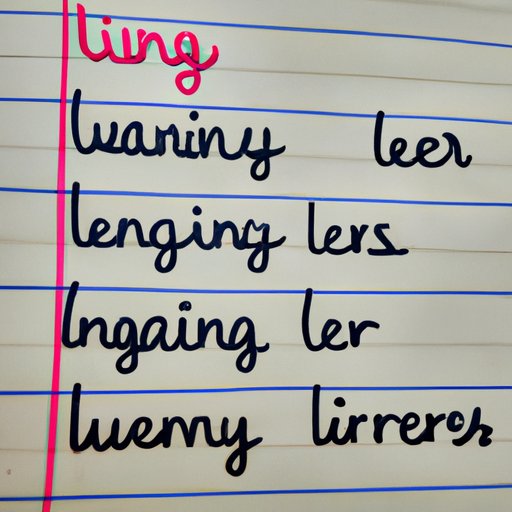 liing
lwariny leer
lenging lers
lngaing ler
luemy lirrers